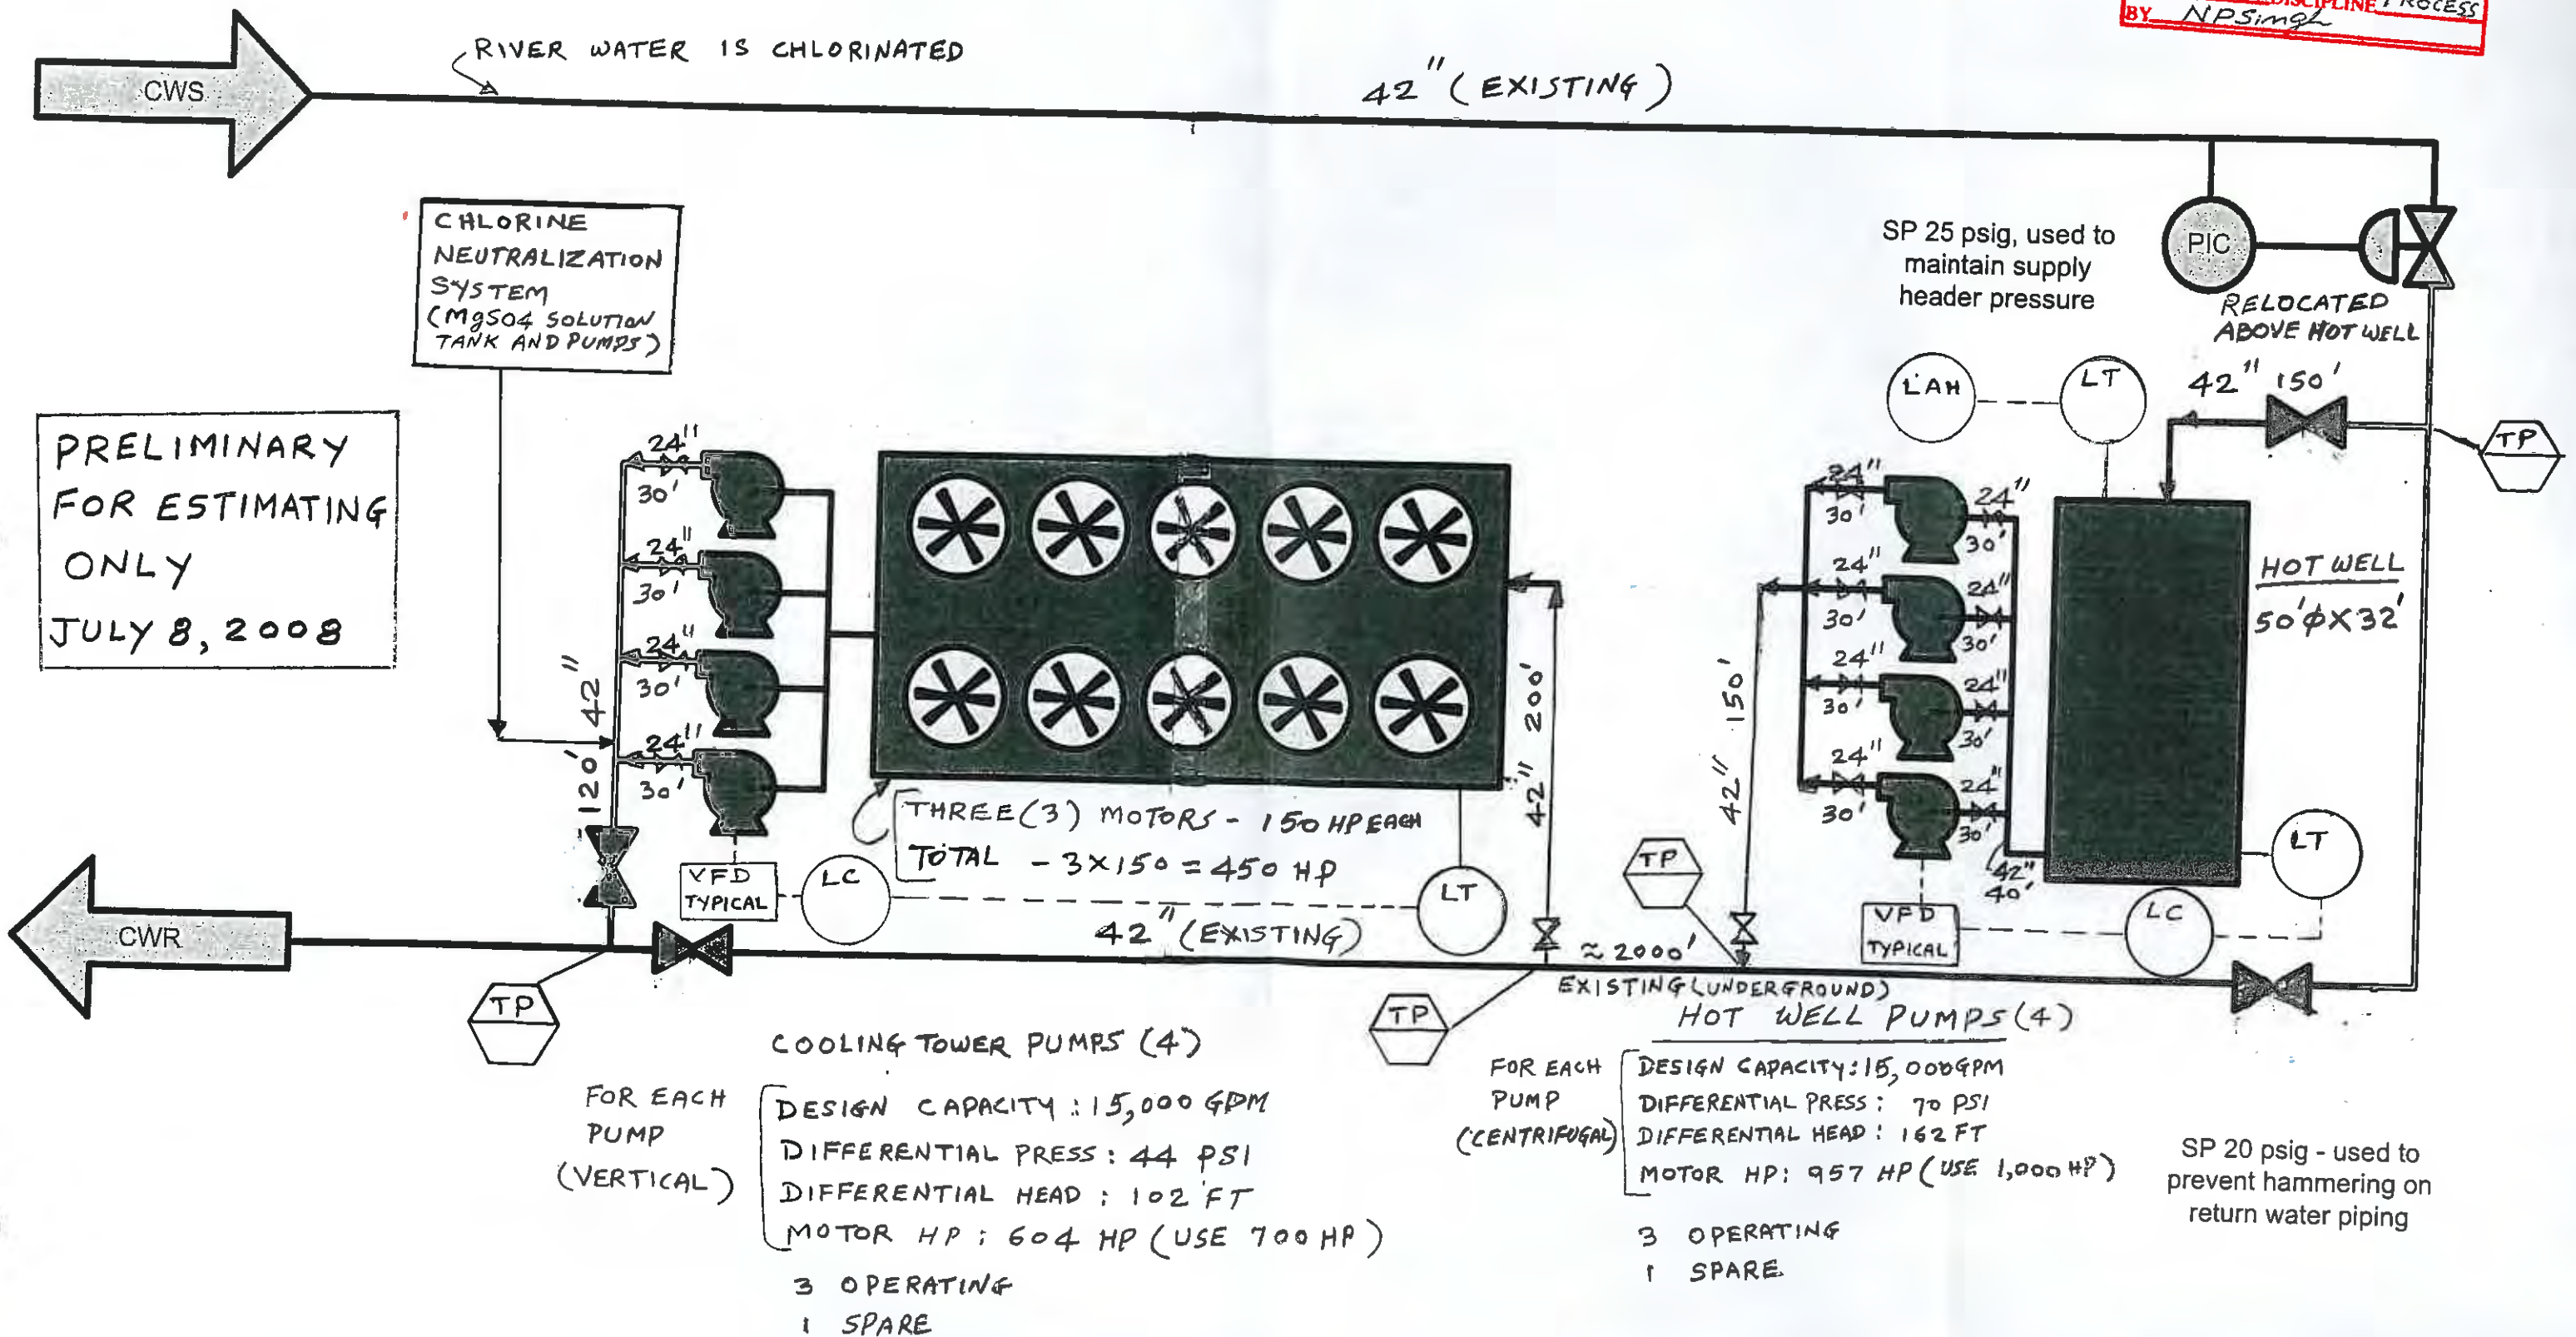 DISCIPLINE PROCESS
BY NPSingh
RIVER WATER IS CHLORINATED
CWS
42" (EXISTING)
CHLORINE
NEUTRALIZATION
SYSTEM
(MgSO4 SOLUTION
TANK AND PUMPS)
SP 25 psig, used to
maintain supply
header pressure
PIC
RELOCATED
ABOVE HOT WELL
LAH
LT
42" 150'
TP
PRELIMINARY
FOR ESTIMATING
ONLY
JULY 8, 2008
24"
30'
24"
30'
24"
30'
24"
30'
120' 42"
24"
30'
24"
30'
24"
30'
24"
30'
24"
30'
24"
30'
24"
30'
24"
30'
42"
40'
HOT WELL
50'φX32'
42" 200'
42" 150'
THREE (3) MOTORS - 150 HP EACH
TOTAL - 3X150 = 450 HP
VFD
TYPICAL
LC
LT
TP
VFD
TYPICAL
LC
LT
CWR
42" (EXISTING)
≈2000'
EXISTING (UNDERGROUND)
TP
TP
COOLING TOWER PUMPS (4)
FOR EACH
PUMP
(VERTICAL)
DESIGN CAPACITY : 15,000 GPM
DIFFERENTIAL PRESS : 44 PSI
DIFFERENTIAL HEAD : 102 FT
MOTOR HP : 604 HP (USE 700 HP)
3 OPERATING
1 SPARE
HOT WELL PUMPS (4)
FOR EACH
PUMP
(CENTRIFUGAL)
DESIGN CAPACITY : 15,000 GPM
DIFFERENTIAL PRESS : 70 PSI
DIFFERENTIAL HEAD : 162 FT
MOTOR HP : 957 HP (USE 1,000 HP)
3 OPERATING
1 SPARE
SP 20 psig - used to
prevent hammering on
return water piping